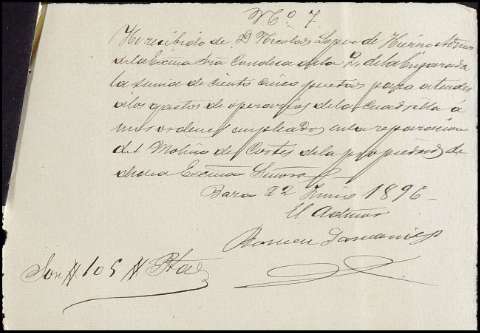 Nº 7.
He recibido de D. Nicolas Lopez de Hierro
de la Excma Sra Condesa de la
la suma de ciento cinco pesetas para atender
a los gastos de operarios de la cuadrilla á
mis ordenes empleados en la reparacion
del Molino de Cortes de la propiedad de
dicha Excma Señora
Baza 22 Junio 1896
El
Ramon
Son # 105 # Ptas